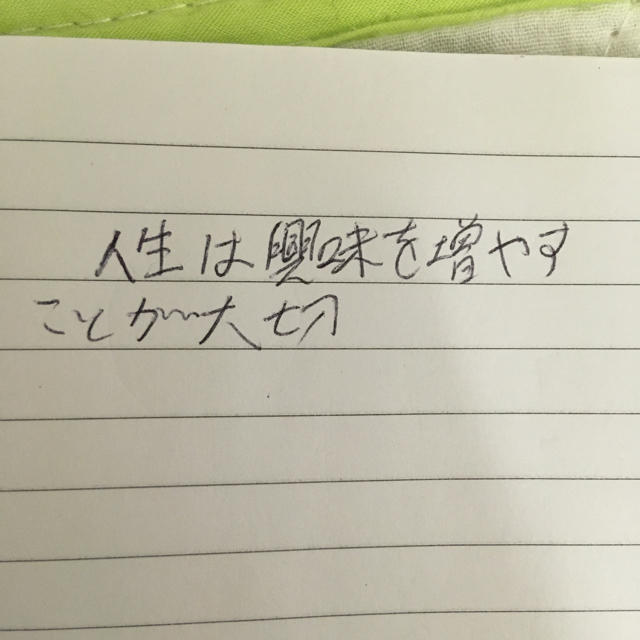 人生は興味を増やす
ことが大切